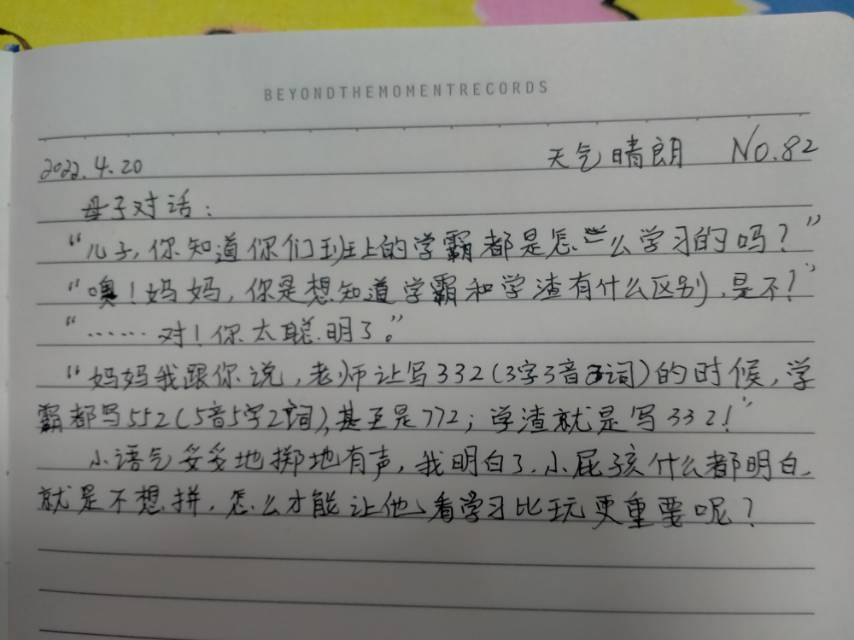 BEYONDTHEMOMENTRECORDS
2022.4.20 天气晴朗 No.82
母子对话:
“儿子,你知道你们班上的学霸都是怎么学习的吗?”
“噢!妈妈,你是想知道学霸和学渣有什么区别,是不?”
“……对!你太聪明了。”
“妈妈我跟你说,老师让写332(3字3音2词)的时候,学
霸都写552(5音5字2词),甚至是772;学渣就是写332!”
小语气妥妥地掷地有声,我明白了,小屁孩什么都明白,
就是不想拼,怎么才能让他看学习比玩更重要呢?